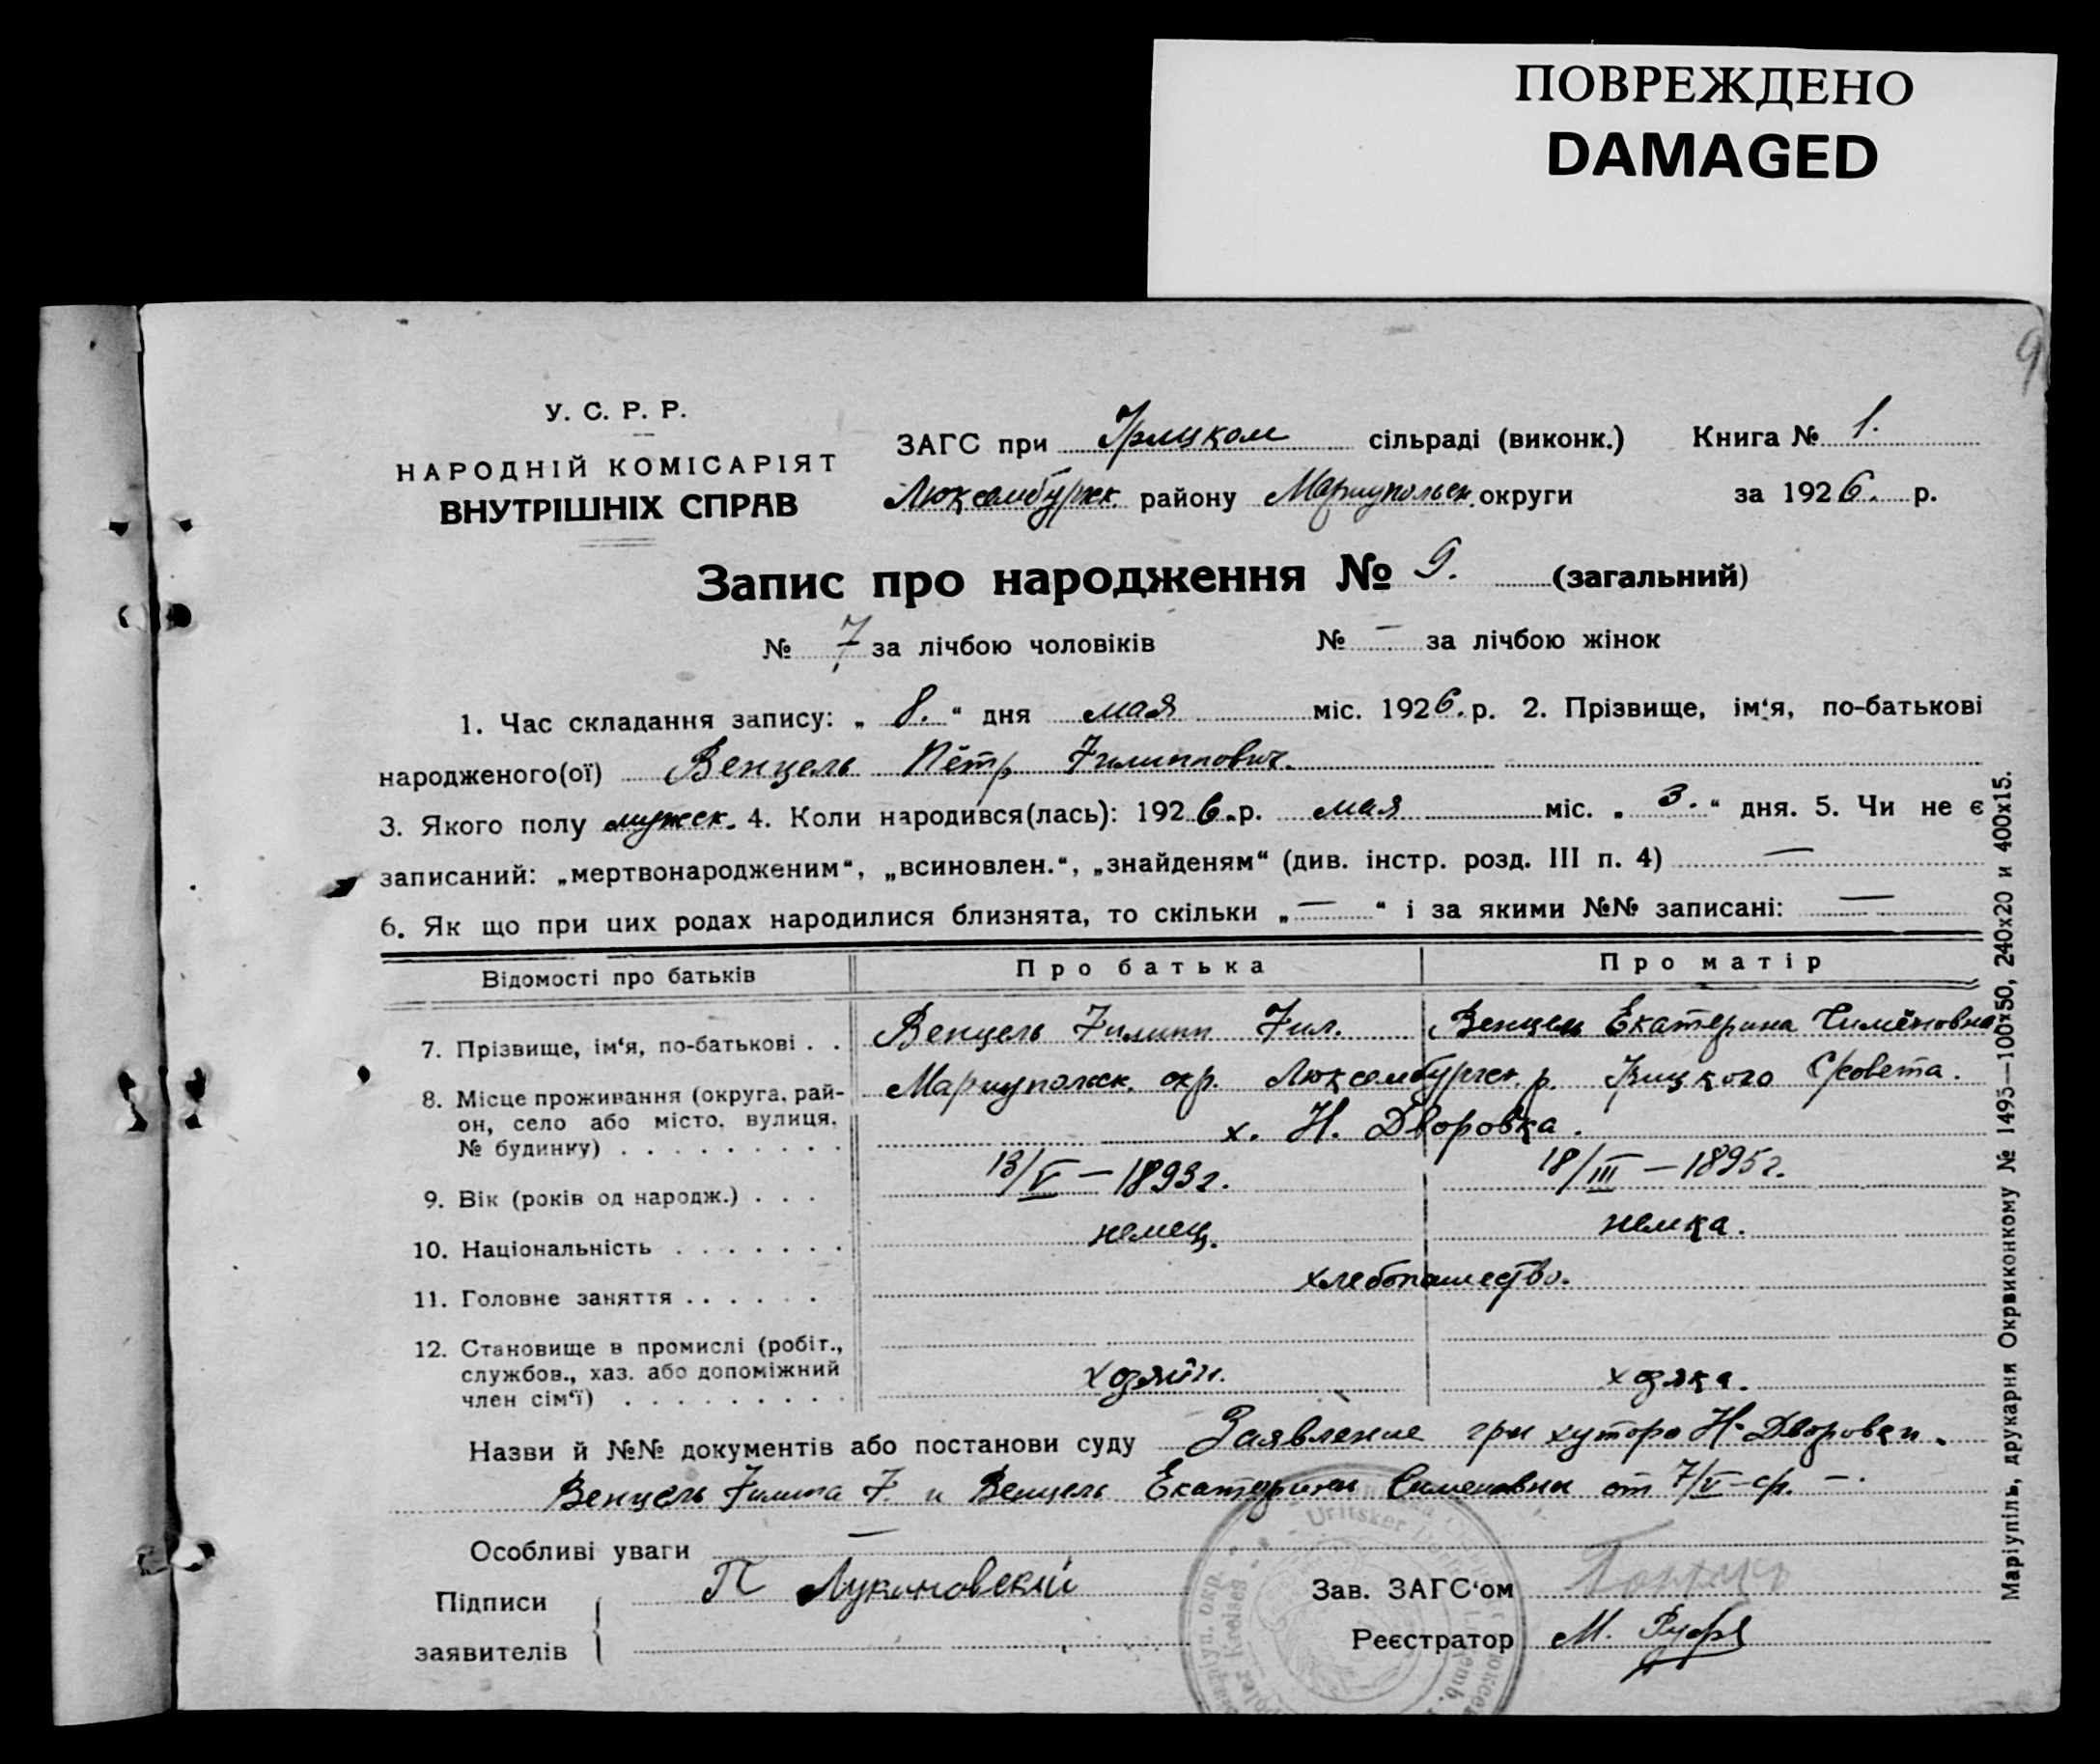 ПОВРЕЖДЕНО
DAMAGED
У. С. Р. Р.
НАРОДНІЙ КОМІСАРІЯТ
ВНУТРІШНІХ СПРАВ
ЗАГС при Урицком сільраді (виконк.) Книга № 1.
Люксембургск. району Мариупольск. округи за 1926. р.
Запис про народження № 9. (загальний)
№ 7 за лічбою чоловіків № — за лічбою жінок
1. Час складання запису: „ 8. “ дня мая міс. 1926. р. 2. Прізвище, ім'я, по-батькові
народженого(ої) Венцель Пётр Филиппович.
3. Якого полу мужск. 4. Коли народився(лась): 1926. р. мая міс. „ 3. “ дня. 5. Чи не є
записаний: „мертвонародженим“, „всиновлен.“, „знайденям“ (див. інстр. розд. III п. 4) —
6. Як що при цих родах народилися близнята, то скільки „ — “ і за якими №№ записані: —
Відомості про батьків Про батька Про матір
7. Прізвище, ім'я, по-батькові . . Венцель Филипп Фил. Венцель Екатерина Симёновна
8. Місце проживання (округа, рай- Мариупольск. окр. Люксембургск. р. Урицкого С/совета.
он, село або місто, вулиця, х. Н. Дворовка.
№ будинку)
9. Вік (років од народж.) . . . 13/V — 1893 г. 18/III — 1895 г.
10. Національність немец. немка.
11. Головне заняття хлебопашество.
12. Становище в промислі (робіт.,
службов., хаз. або допоміжний хозяин. хозяка.
член сім'ї)
Назви й №№ документів або постанови суду Заявление гр-н хутора Н-Дворовки.
Венцель Филиппа Ф. и Венцель Екатерины Сименовны от 7/V-ср. —.
Особливі уваги —
Підписи П
заявителів
Зав. ЗАГС'ом
Реєстратор М.
Uritsker
Маріупіль, друкарня Окрвиконкому № 1495—100×50, 240×20 и 400×15.